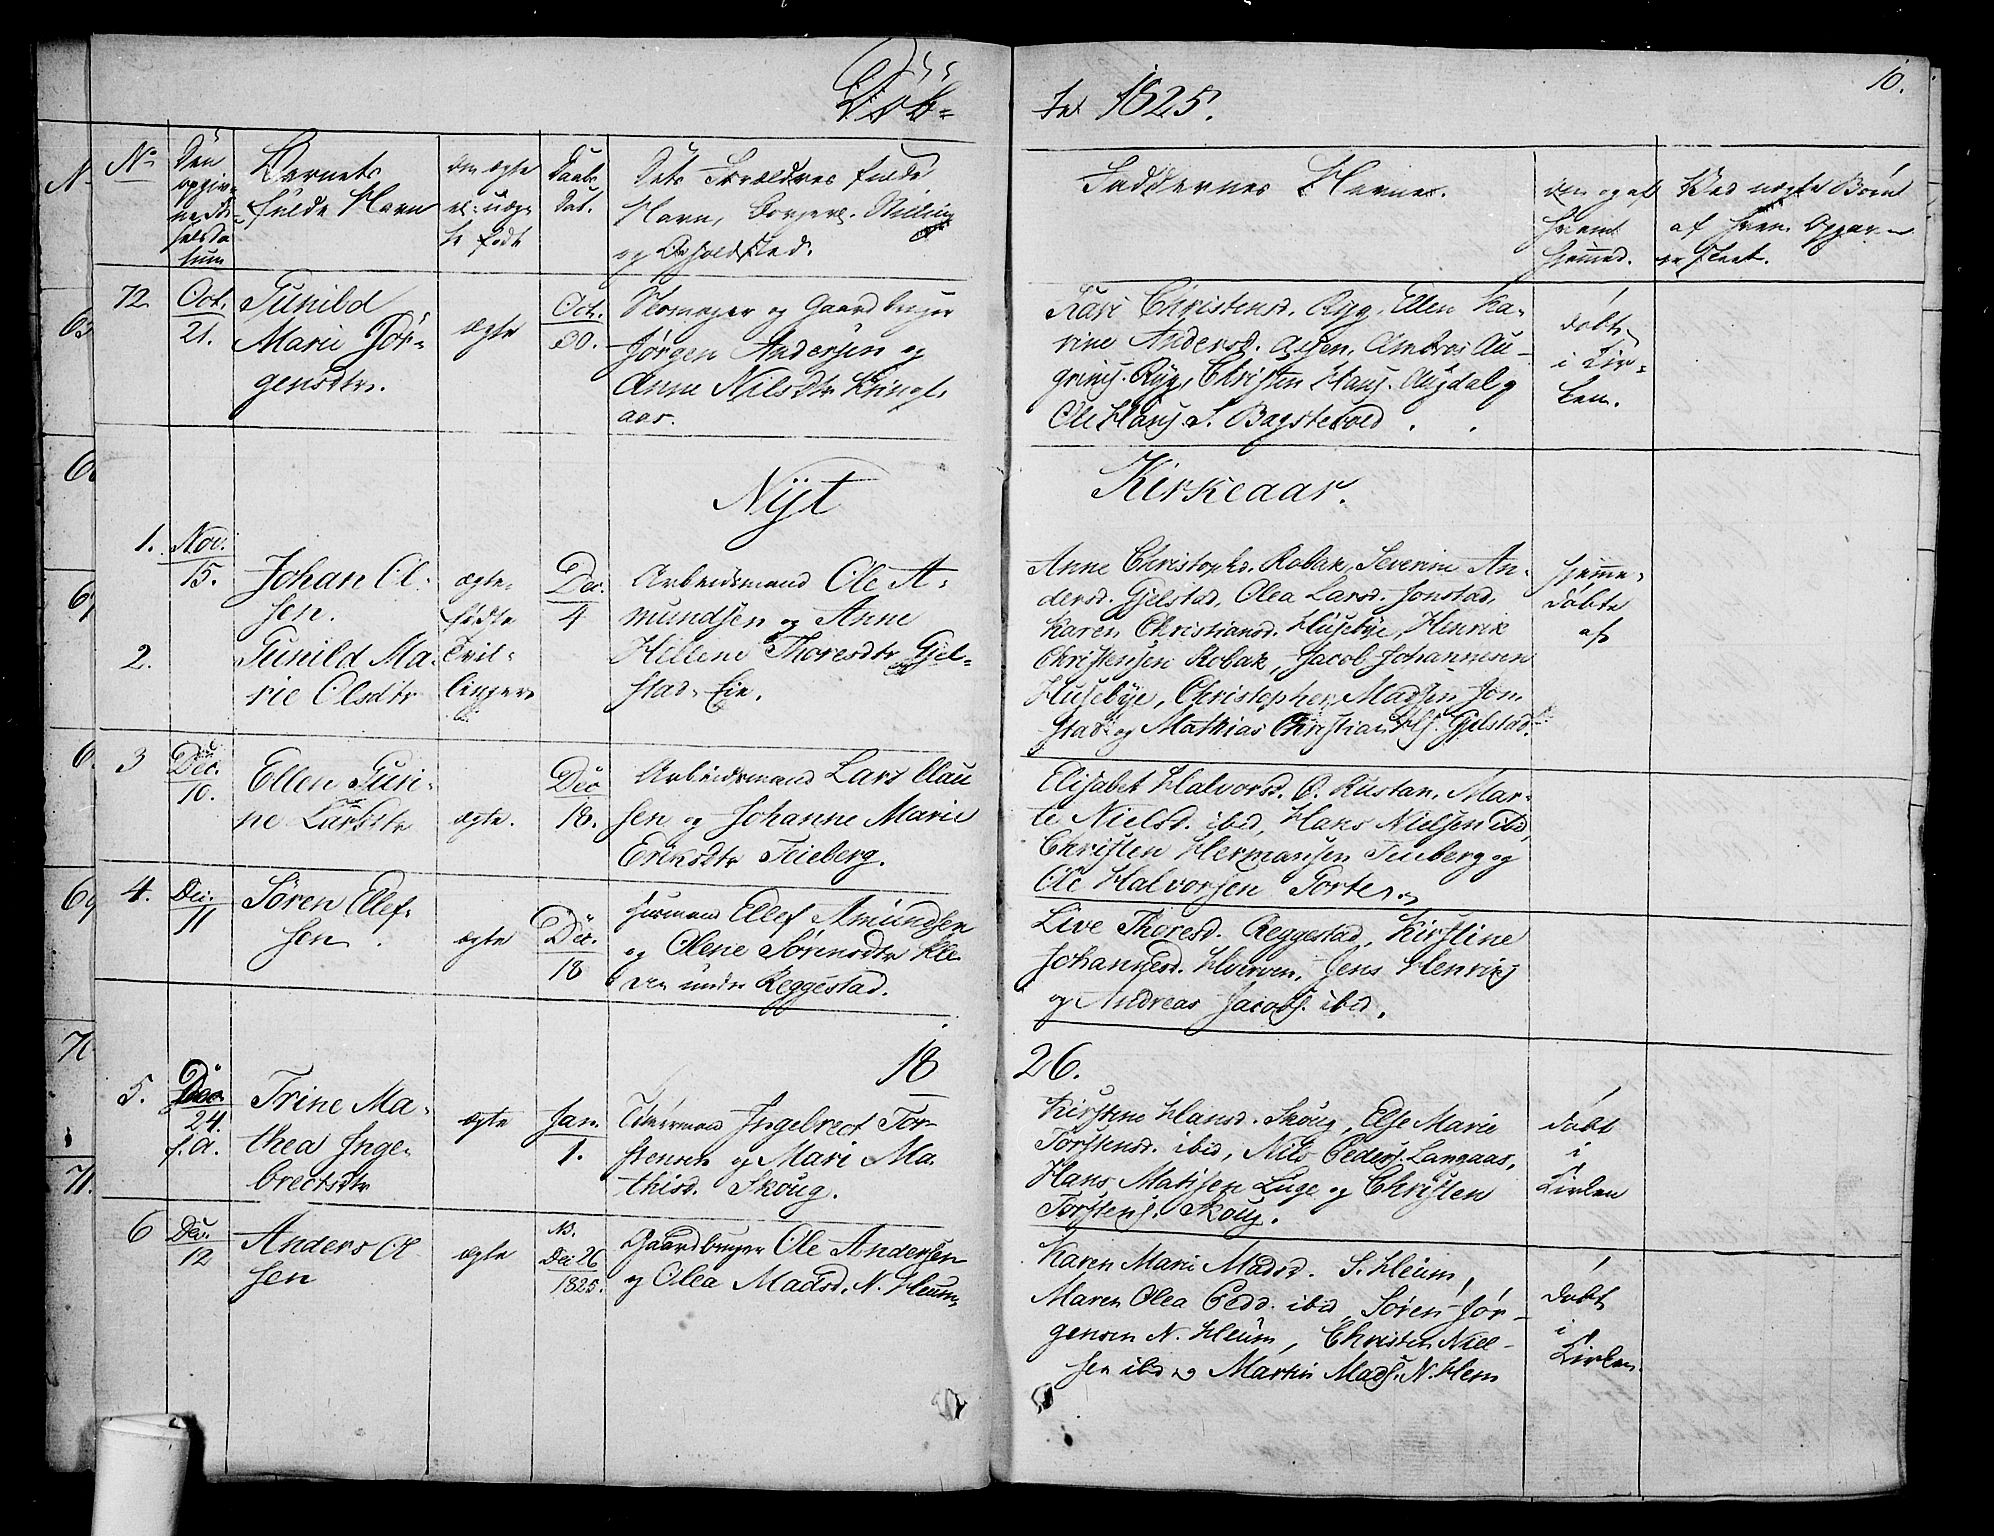 Døb-
te 1825.
10.
No
Den opgivne Fødselsdatum
Barnets fulde Navn
om ægte el: uægte født
Daabs Dat.
Dets Forældres fulde
Navn, Borgerl. Stilling
og Opholdsted.
Faddernes Navne.
Ved uægte Børn
72.
Oct.
21.
Gunild
Marie Jør-
gensdtr.
ægte
Oct.
30.
og Gaardbruger
Jørgen Andersen og
Anne Nilsdtr
aas.
Kari Christensd. Ryg, Ellen Ka-
rine Andersd.
Ryg, Christen Hans.
Ole Hans. S. Bagstevold
døbt
i Kir-
ken.
Nyt
Kirkeaar.
1.
Nov.
15.
Johan Ol
sen.
ægte
fødte
Tvil-
linger
Dec.
4
Arbeidsmand Ole A-
mundsen og Anne
Hellene Thoresdtr Gjel-
stad-Eie.
2.
Gunild Ma-
rie Olsdtr
Anne Christophd. Robak, Severine An-
dersd. Gjelstad, Olea Larsd. Jonstad,
Karen Christiansd. Husebye, Henrik
Christensen Robak, Jacob Johannesen
Husebye, Christopher Madsen Jon-
stad og Mathias Christian Gjelstad.
hjemme-
døbte
af
3
Dec.
10.
Ellen Guri-
ne Larsdtr
ægte.
Dec
18.
Arbeidsmand Lars Clau
sen og Johanne Marie
Eriksdtr Teieberg.
Elisabet Halvorsd. Ø. Rustan, Mar-
te Nielsd. ibid, Hans Nielsen ibid,
Christen Hermansen Teieberg og
Ole Halvorsen Porte
4.
Dec.
11
Søren Ellef-
sen.
ægte
Dec.
18
Huusmand Ellef Amundsen
og Olene Sørensdtr
under Reggestad.
Live Thoresd. Reggestad, Kirstine
Johannesd. Hverven, Jens Henriks
og Andreas Jacobs. ibid.
18
26.
5.
Dec.
24.
f. A.
Trine Ma-
thea Inge-
brectsdtr
ægte
Jan.
1.
Ingebrect Tor-
stensen og Mari Ma-
thisd. Skoug.
Kirstine Hansd. Skoug, Else Marie
Torstensd. ibid, Nils Peders. Langaas,
Hans Matisen Luge og Christen
Torstens. Skoug.
døbt
i
Kirken
6
Dec.
12
Anders Ol
sen
ægte
NB.
Dec 26
1825.
Gaardbruger Ole Andersen
og Olea Madsd. N. Hleum
Karen Marie Madsd. S. Hleum,
Maren Olea Pedd. ibid, Søren Jør-
gensen N. Hleum, Christen Niel-
sen ibid og Martin Mads. N. Hlem
døbt
i
Kirken